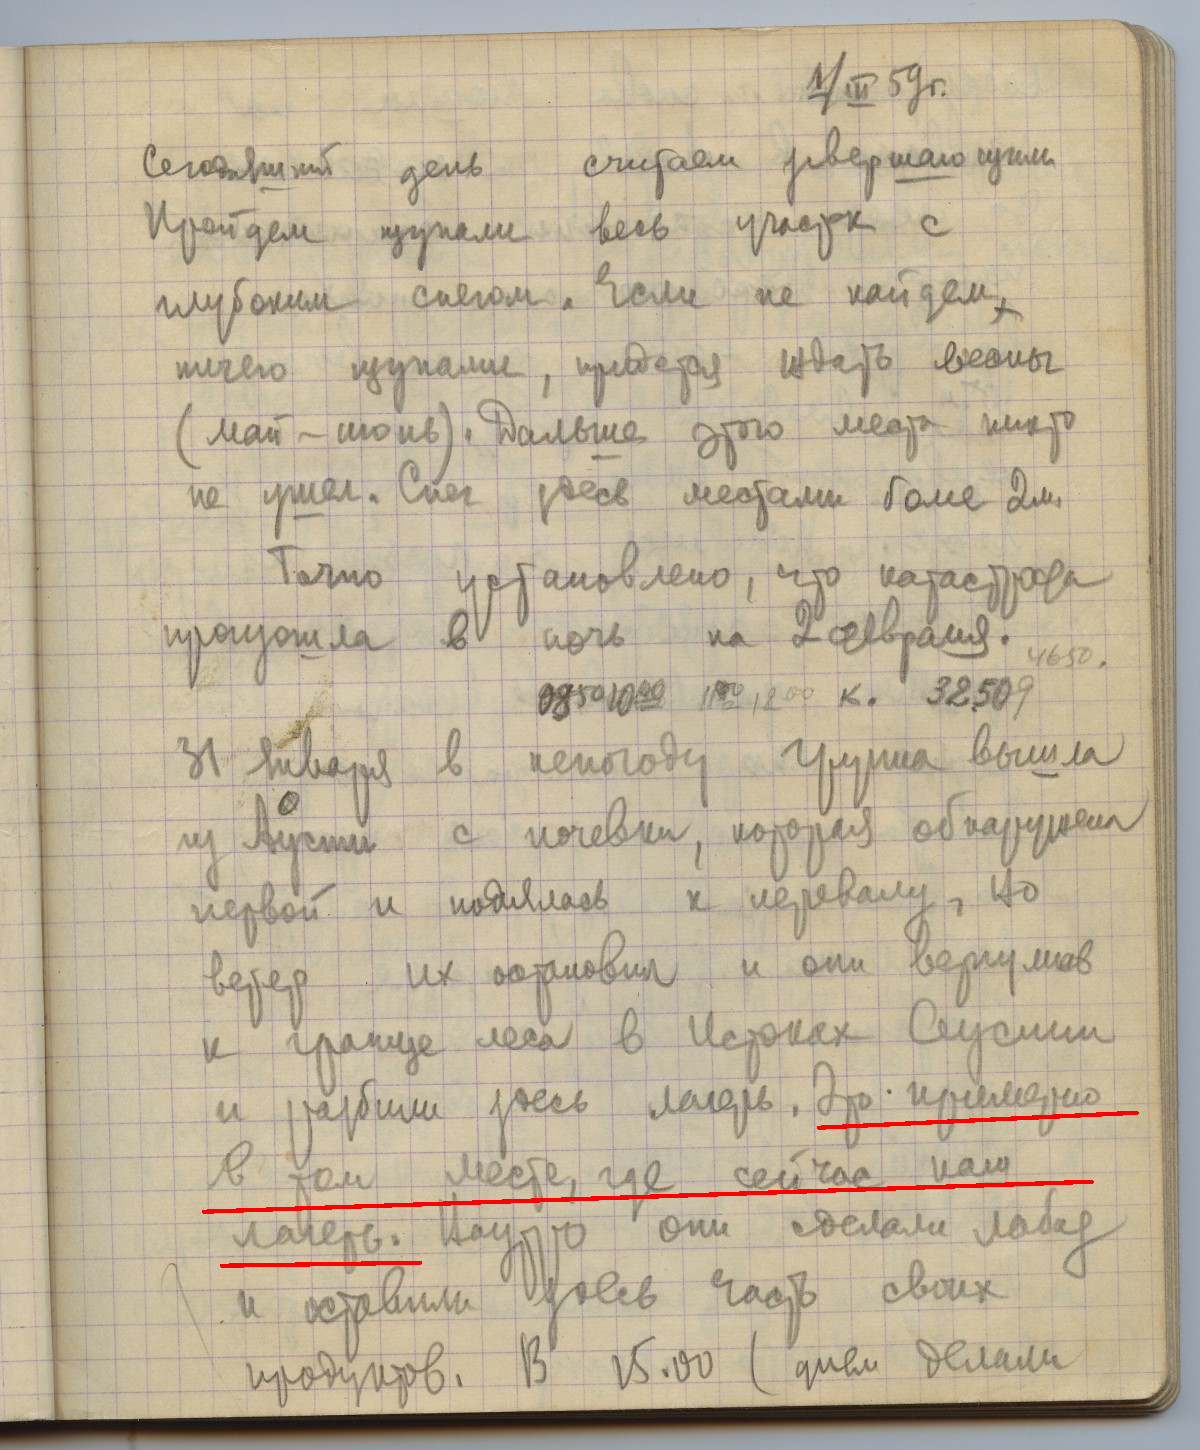 1/III 59г.
Сегодняшний день считаем завершающим.
Пройдем щупами весь участк с
глубоким снегом. Если не найдем
ничего щупами, придется ждать весны
(май – июнь). Дальше этого места никто
не ушел. Снег здесь местами более 2м.
Точно установлено, что катастрофа
произошла в ночь на 2 февраля.
4650.
0850 1000 1200 к. 32509
31 января в непогоду группа вышла
из Ауспии с ночевки, которая обнаружена
первой и поднялась к перевалу, но
ветер их остановил и они вернулись
к границе леса в истоках Ауспии
и разбили здесь лагерь. Это примерно
в том месте, где сейчас наш
лагерь. Наутро они сделали лабаз
и оставили здесь часть своих
продуктов. В 15.00 (днем делали